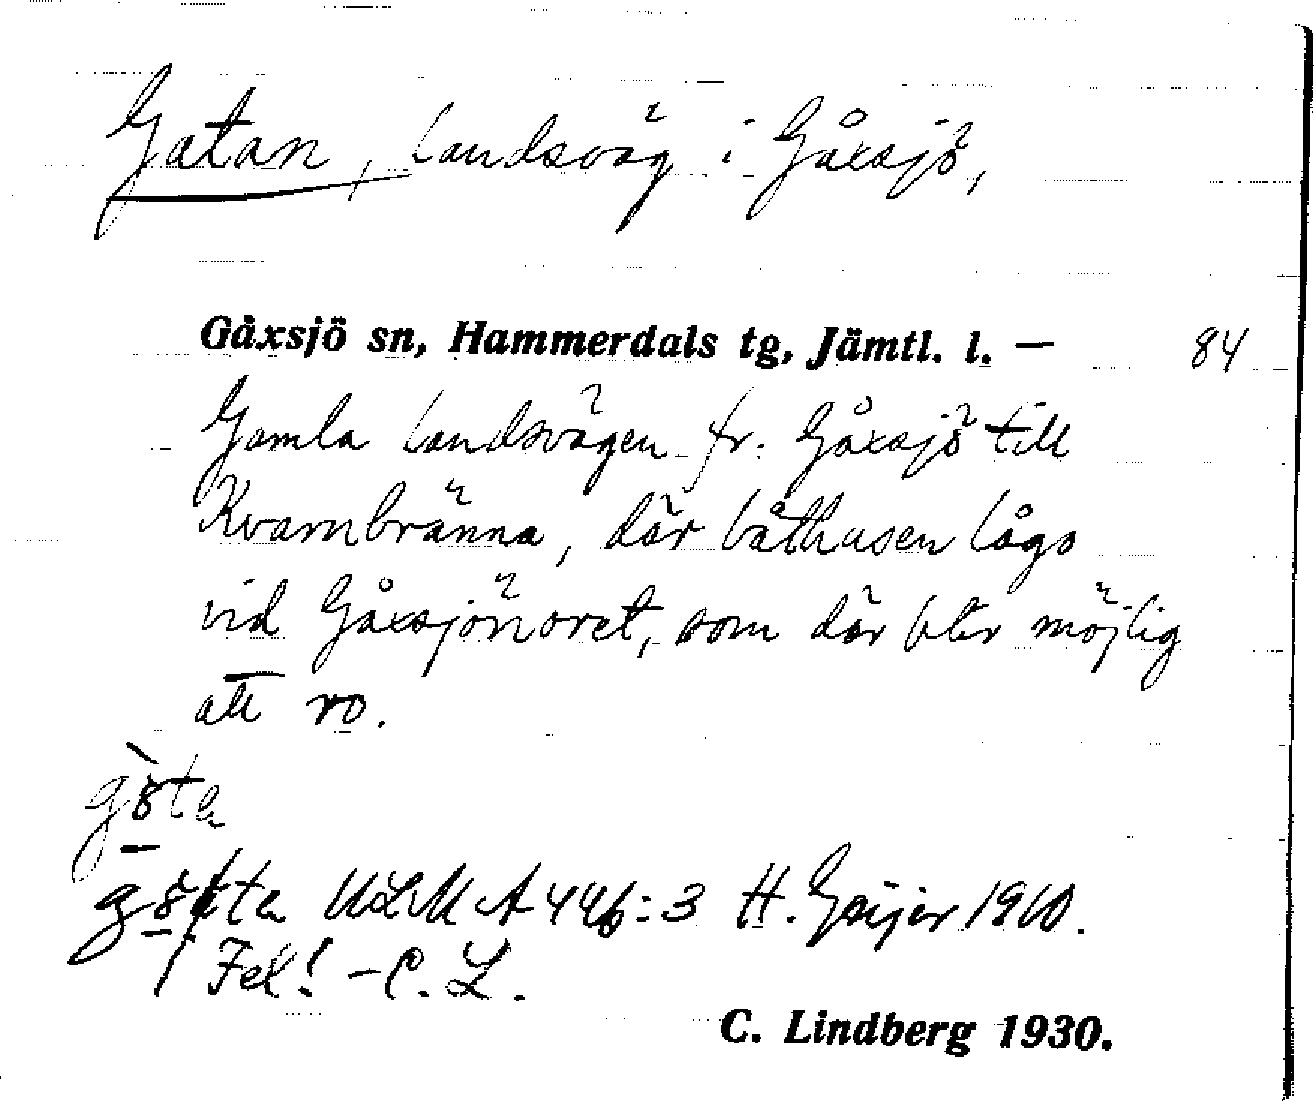 Gatan, landsväg i Gåxsjö,
Gåxsjö sn, Hammerdals tg, Jämtl. l. — 84
Gamla landsvägen fr. Gåxsjö till
Kvarnbränna, där båthusen lågo
vid Gåxsjönoret, som där blir möjlig
att ro.
ULMA 446:3 H. Geijer 1910.
Fel! – C. L.
C. Lindberg 1930.